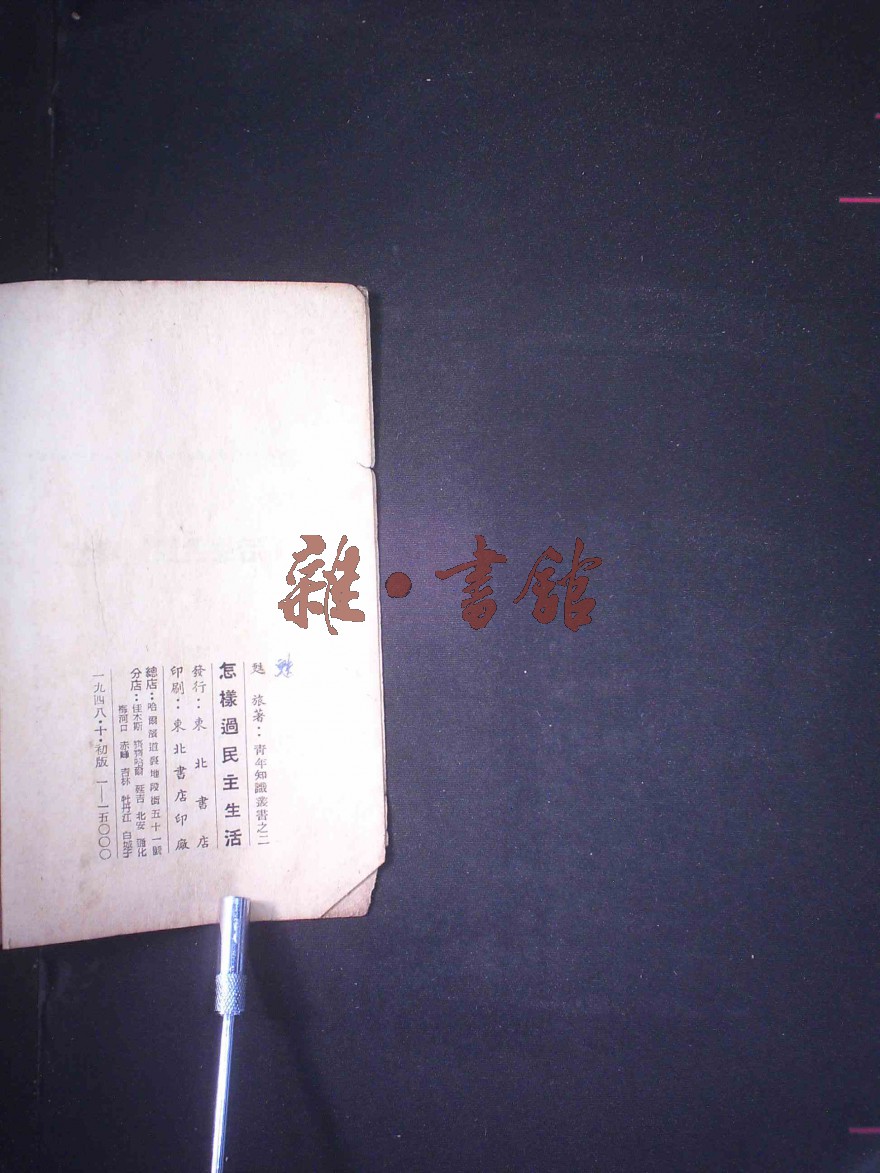 甡旅著：青年知識叢書之二
怎樣過民主生活
發行：東北書店
印刷：東北書店印廠
總店：哈爾濱道裏地段街五十一號
分店：佳木斯 齊齊哈爾 延吉 北安 通化
梅河口 赤峰 吉林 牡丹江 白城子
一九四八·十·初版 一—一五〇〇〇
雜·書館